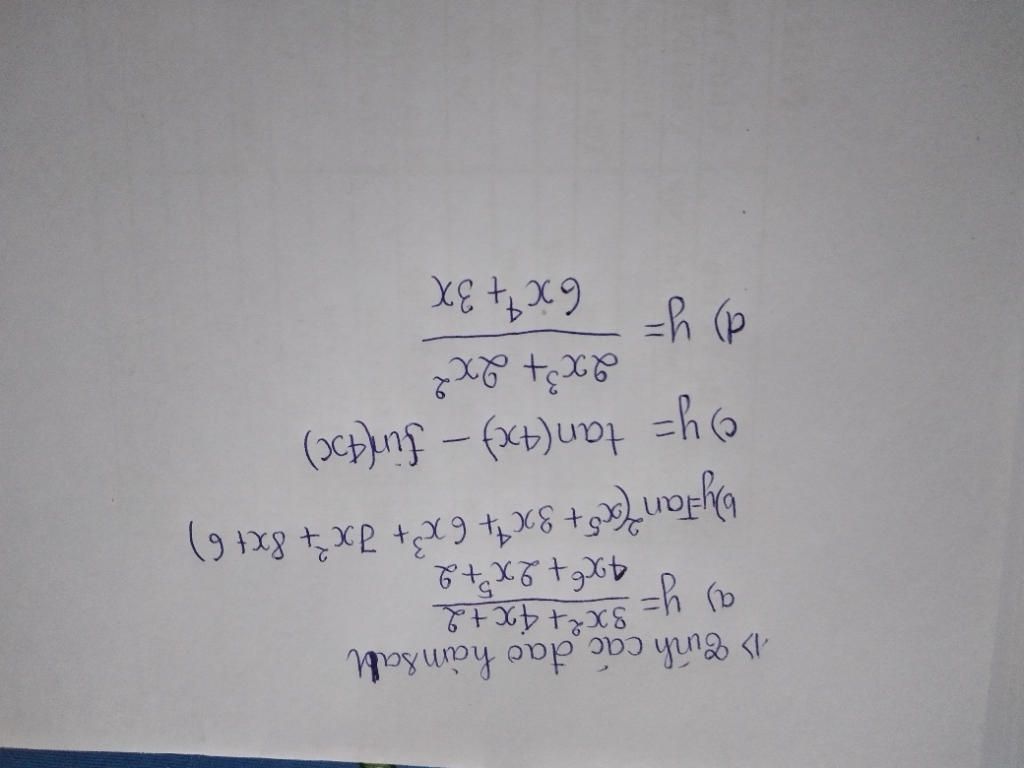 1) Tính các đạo hàm sau
a) y = (3x² + 4x + 2)/(4x⁶ + 2x⁵ + 2)
b) y = tan²(x⁵ + 3x⁴ + 6x³ + 7x² + 8x + 6)
c) y = tan(4x) - sin(4x)
d) y = (2x³ + 2x²)/(6x⁴ + 3x)